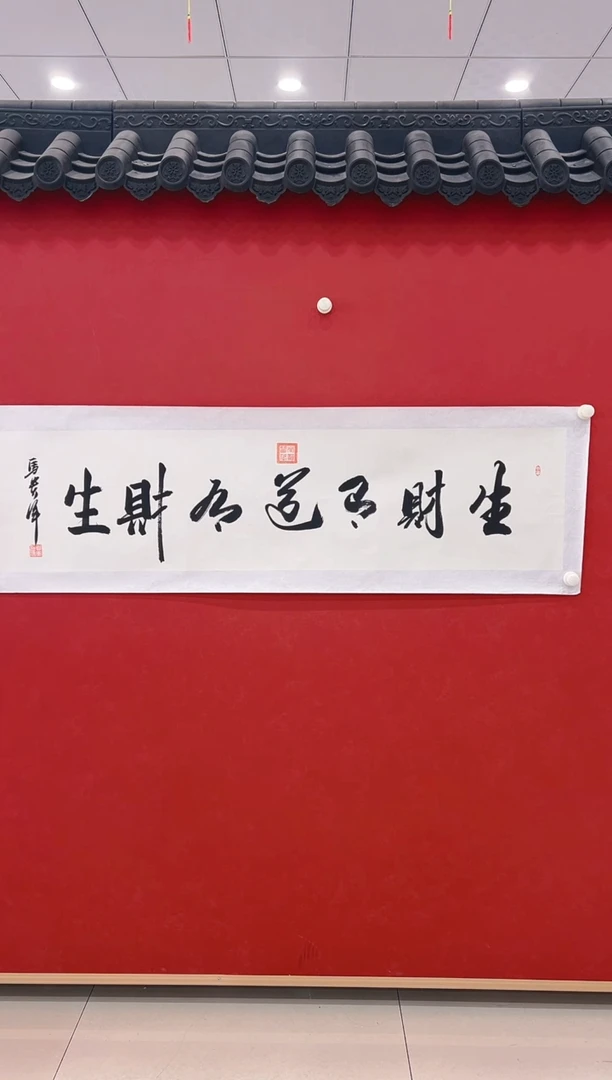 生財有道有財生